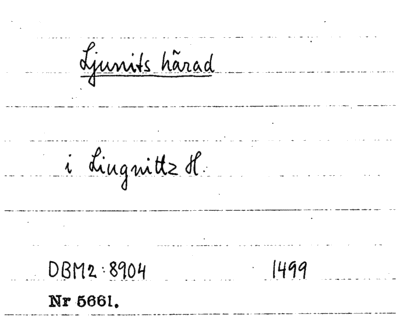 Ljunits härad
i Liugnittz H.
DBM2:8904 1499
Nr 5661.